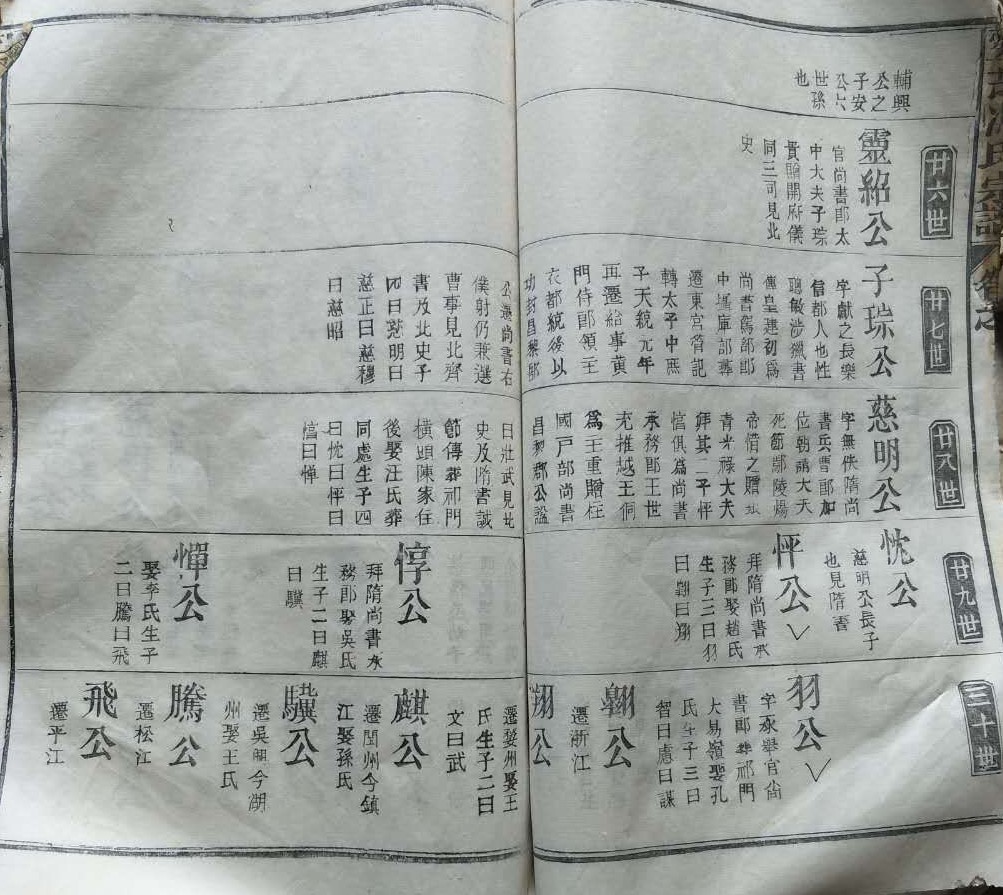 輔興
公之
子安
公六
世孫
也
廿六世
靈紹公
官尚書郎太
中大夫子琮
貴贈開府儀
同三司見北
史
廿七世
子琮公
字獻之長樂
信都人也性
聰敏涉獵書
傳皇建初爲
尚書駕部郎
中攝庫部葬
遷東宮管記
轉太子中庶
子天統元年
再遷給事黄
門侍郎領主
衣都統後以
功封昌黎郡
公遷尚書右
僕射仍兼選
曹事見北齊
書及北史子
四曰慈明曰
慈正曰慈穆
曰慈昭
廿八世
慈明公
字無佚隋尚
書兵曹郎加
位朝請大夫
死節鄢陵煬
帝惜之贈銀
青光祿大夫
拜其二子怦
惇俱爲尚書
承務郎王世
充推越王侗
爲主重贈柱
國戶部尚書
昌黎郡公諡
曰壯武見北
史及隋書誠
節傳葬祁門
橫頭陳家住
後娶汪氏葬
同處生子四
曰忱曰怦曰
惇曰惲
廿九世
忱公
慈明公長子
也見隋書
怦公
拜隋尚書承
務郎娶趙氏
生子三曰羽
曰翱曰翔
惇公
拜隋尚書承
務郎娶吳氏
生子二曰麒
曰驥
憚公
娶李氏生子
二曰騰曰飛
三十世
羽公
字永舉官尚
書郎葬祁門
大易嶺娶孔
氏生子三曰
智曰慮曰謀
翱公
遷浙江
翔公
遷婺州娶王
氏生子二曰
文曰武
麒公
遷閏州今鎮
江娶孫氏
驥公
遷吳興今湖
州娶王氏
騰公
遷松江
飛公
遷平江